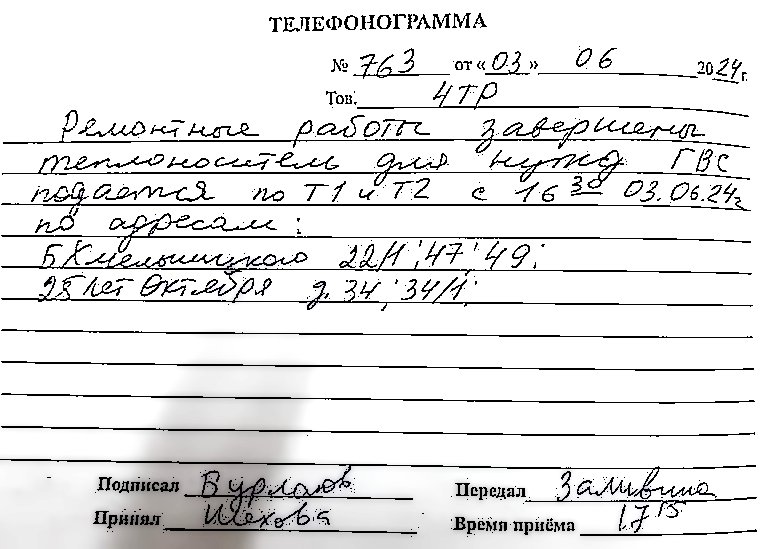 ТЕЛЕФОНОГРАММА
№ 763 от «03» 06 2024г.
Тов. 4ТР
Ремонтные работы завершены
теплоноситель для нужд ГВС
подается по Т1 и Т2 с 16 30 03.06.24г
по адресам:
Б Хмельницкого 22/1; 47; 49;
25 лет Октября д. 34; 34/1;
Подписал Бурлаков Передал Заливина
Принял Шехова Время приёма 17 15